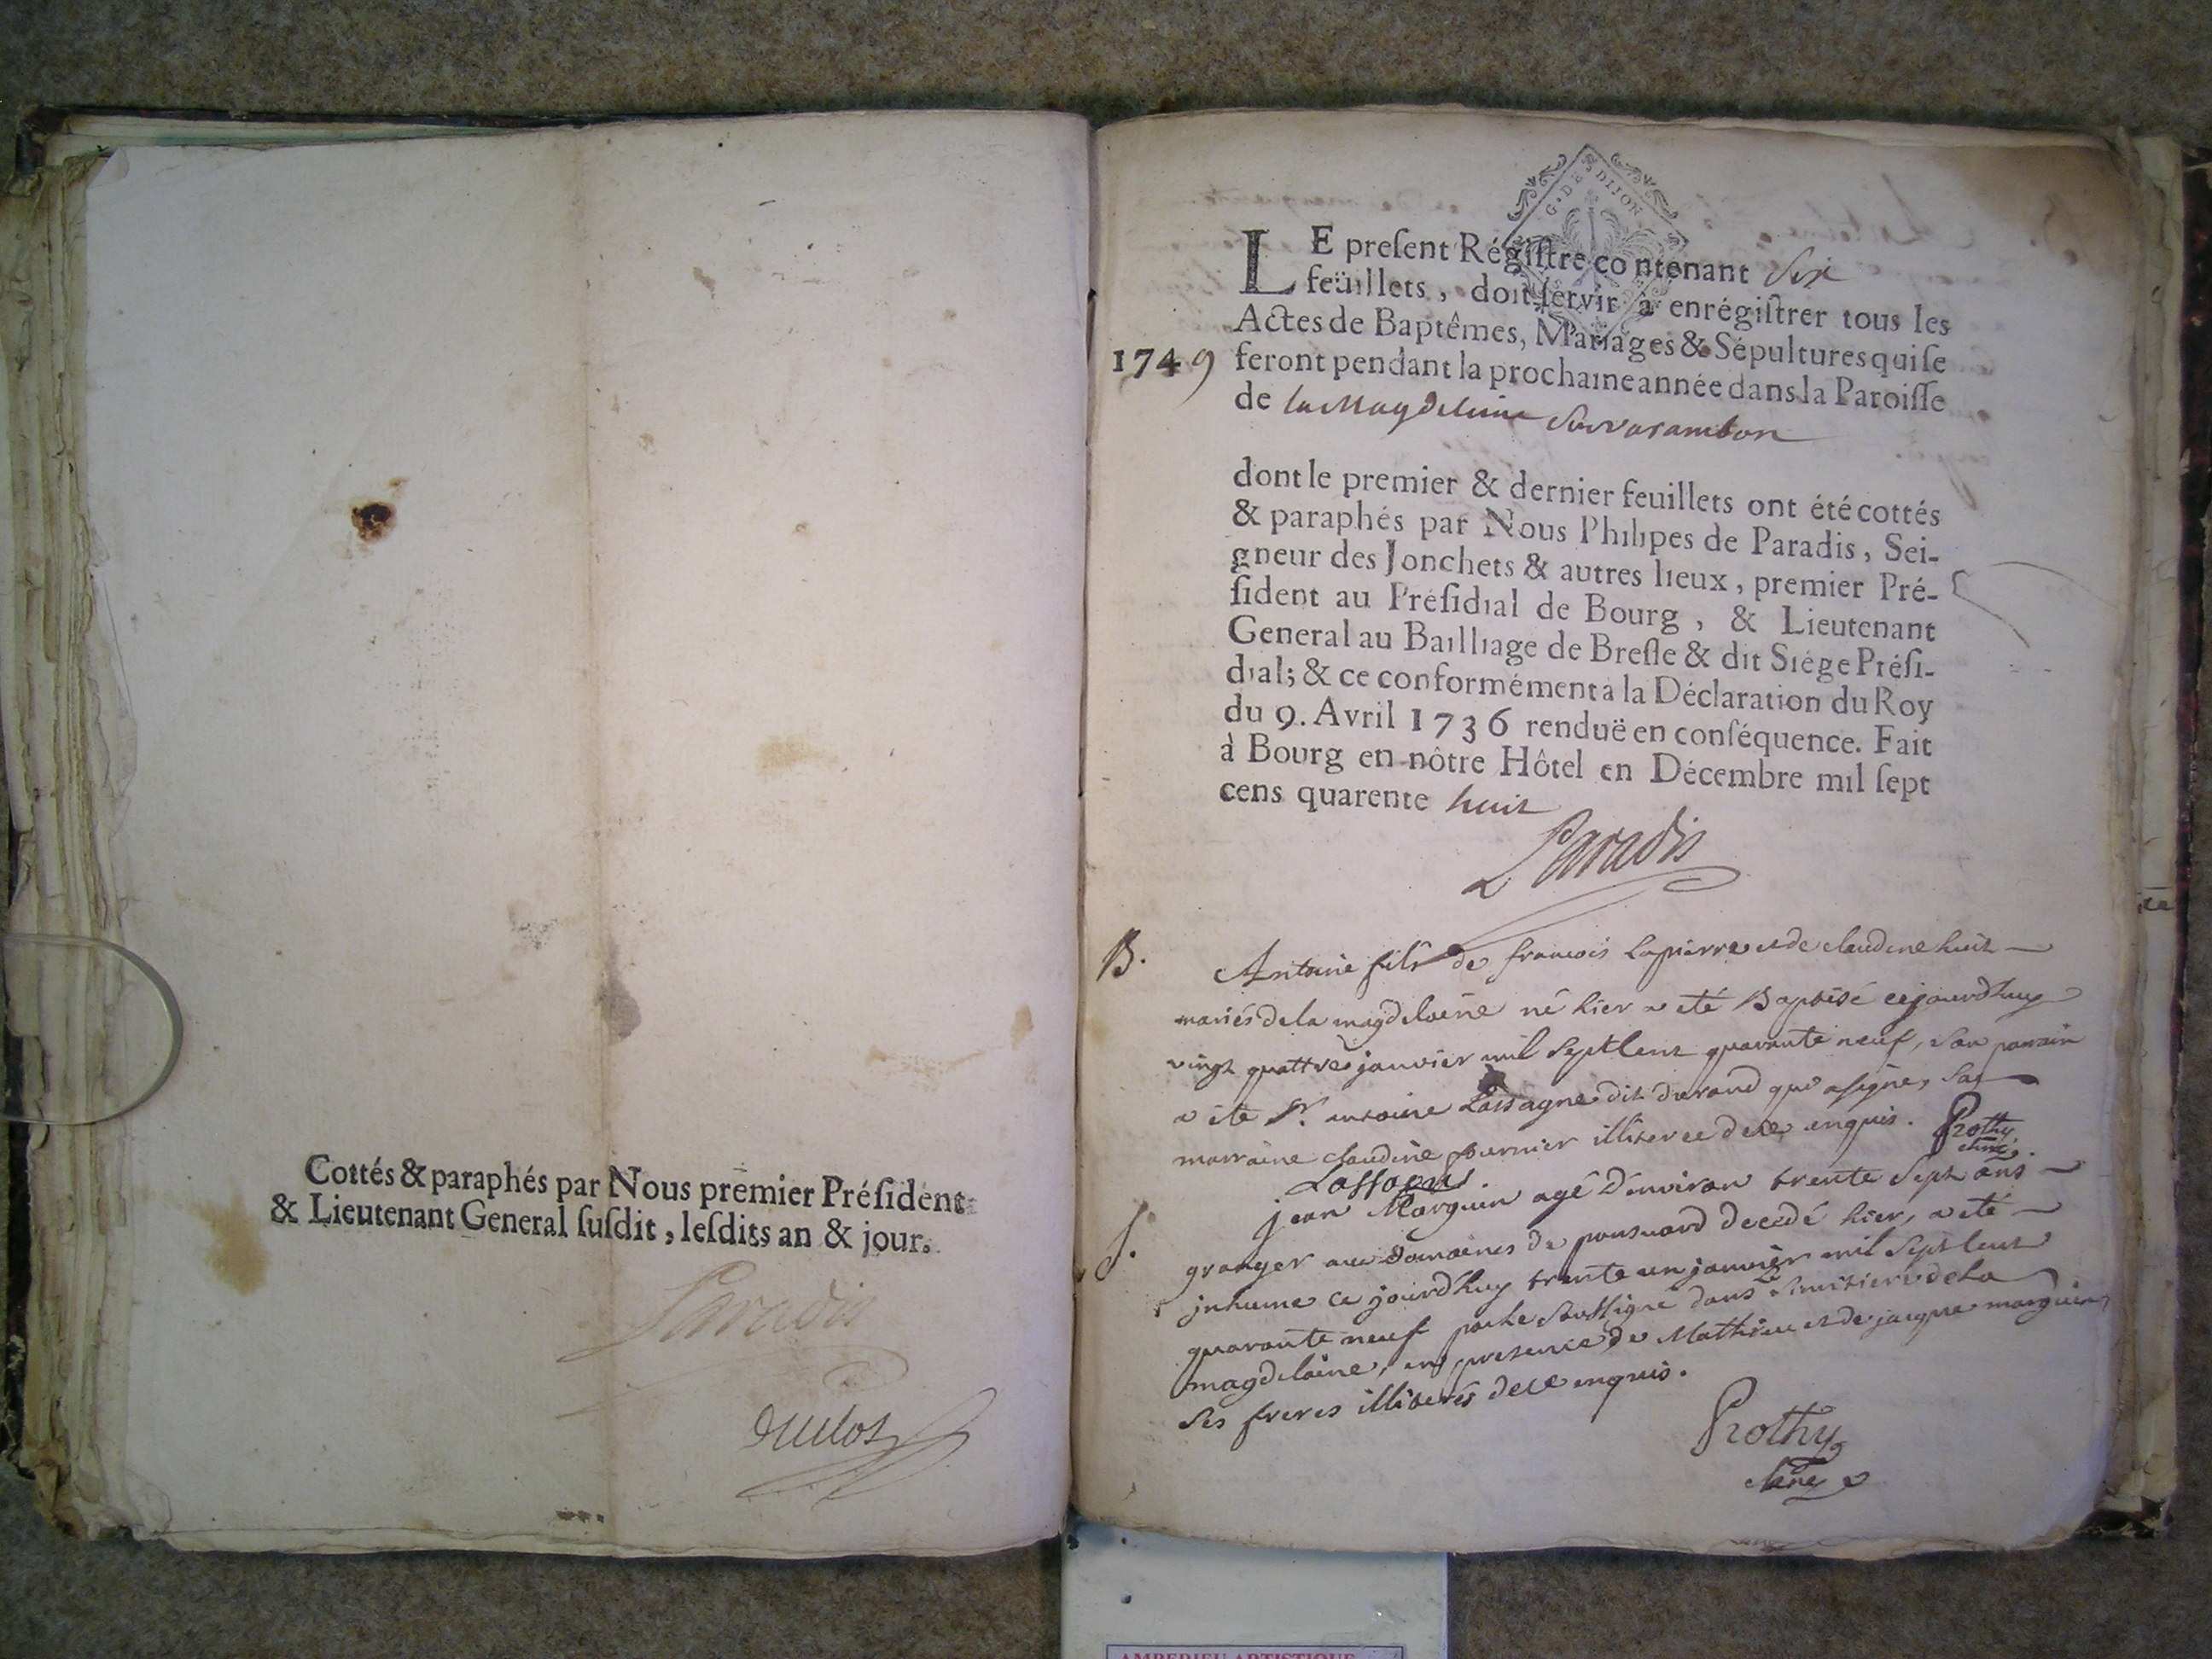 Cottés & paraphés par Nous premier Préſident
& Lieutenant General ſuſdit, leſdits an & jour.
Paradis
G. DE DIJON
LE preſent Régiſtre contenant Six
feüillets, doit ſervir à enrégiſtrer tous les
Actes de Baptêmes, Mariages & Sépultures qui ſe
1749 feront pendant la prochaine année dans la Paroiſſe
de la Magdeleine Sur varambon
dont le premier & dernier feuillets ont été cottés
& paraphés par Nous Philipes de Paradis, Sei-
gneur des Jonchets & autres lieux, premier Pré-
ſident au Préſidial de Bourg, & Lieutenant
General au Bailliage de Breſſe & dit Siége Préſi-
dial; & ce conformément à la Déclaration du Roy
du 9. Avril 1736 renduë en conſéquence. Fait
à Bourg en nôtre Hôtel en Décembre mil ſept
cens quarente huit
Paradis
B. Antoine fils de francois Lapierre et de claudine huit
mariés de la magdelaine né hier a eté Baptisé cejourdhuy
vingt quattre janvier mil Sept Cent quarante neuf, son parrain
a ete Sr. antoine Lassagne dit durand qui a signé, sa
marraine claudine fournier illiteree de ce enquis. Prothy
curé.
Lassagne
S. jean Marguin agé d'environ trente Sept ans
granger aux domaines de decedé hier, a eté
jnhumé ce jourdhuy trente un janvier mil Sept Cent
quarante neuf par le Soussigné dans le Cimitiere de La
magdelaine, en presence de Mathieu et de jacque marguin
Ses freres illiterés de ce enquis.
Prothy
curé
AMBERIEU ARTISTIQUE